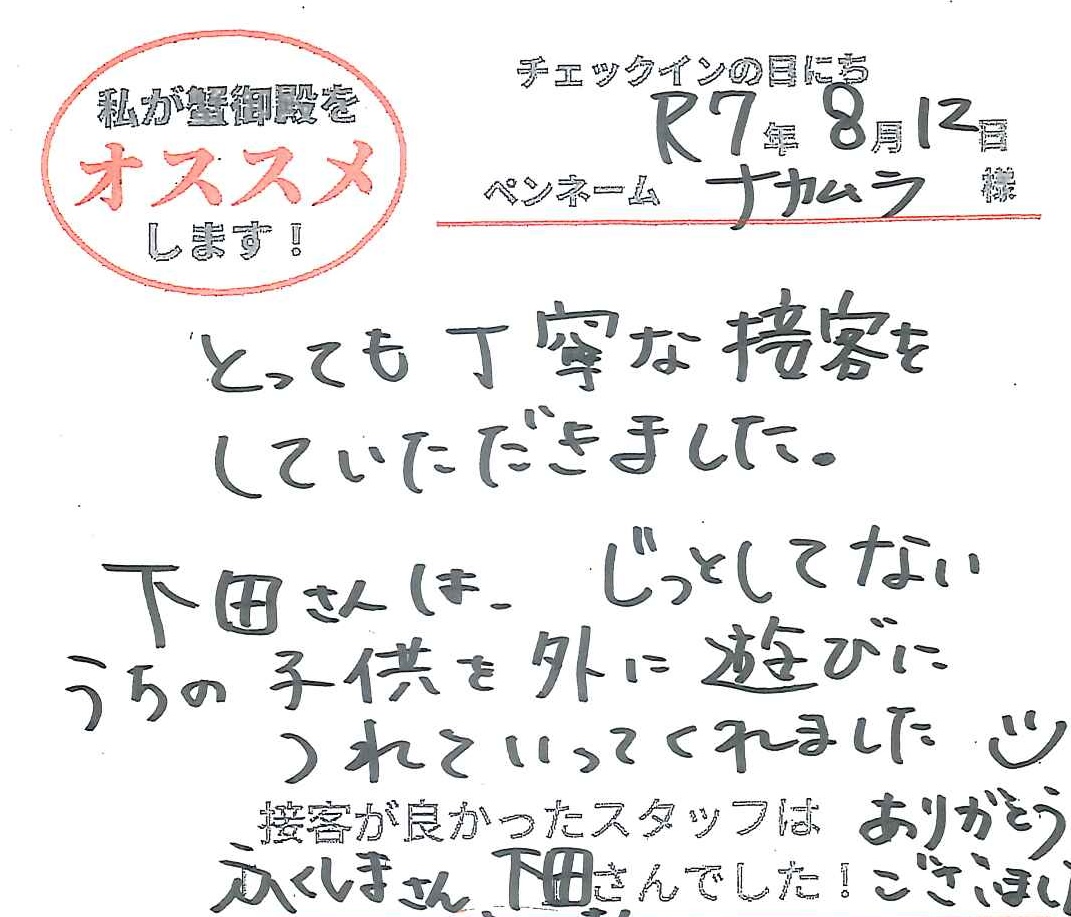 私が蟹御殿を
オススメ
します！
チェックインの日にち
R7年 8月12日
ペンネーム ナカムラ 様
とっても丁寧な接客を
していただきました。
下田さんは、じっとしてない
うちの子供を外に遊びに
つれていってくれました
接客が良かったスタッフは ありがとう
ふくしまさん 下田さんでした！ ございまし